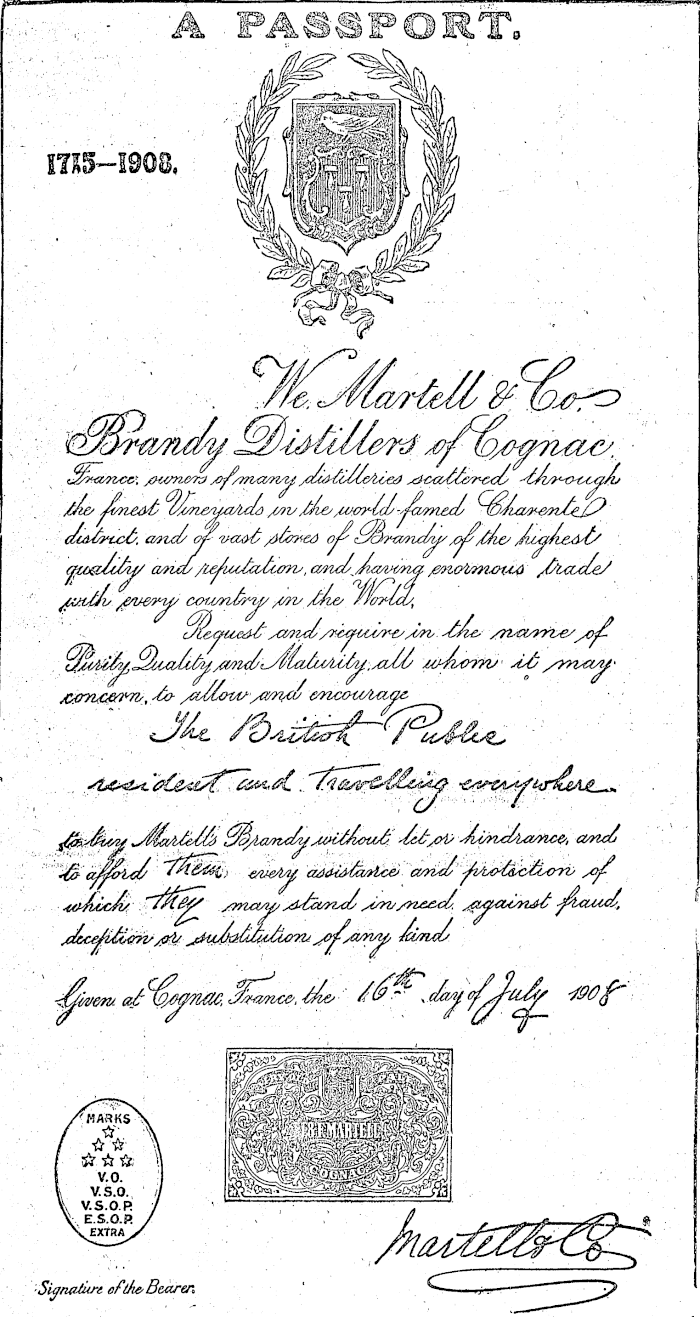 A PASSPORT.
1715–1908.
We, Martell & Co.
Brandy Distillers of Cognac,
France, owners of many distilleries scattered through
the finest Vineyards in the world-famed Charente
district, and of vast stores of Brandy of the highest
quality and reputation, and having enormous trade
with every country in the World,
Request and require in the name of
Purity, Quality, and Maturity, all whom it may
concern, to allow and encourage
The British Public
resident and travelling everywhere.
to buy Martell's Brandy without let or hindrance, and
to afford them every assistance and protection of
which they may stand in need against fraud,
deception or substitution of any kind
Given at Cognac, France, the 16th day of July 1908
MARKS
V.O.
V.S.O.
V.S.O.P.
E.S.O.P.
EXTRA
J. & F. MARTELL
COGNAC
Martell & Co
Signature of the Bearer.